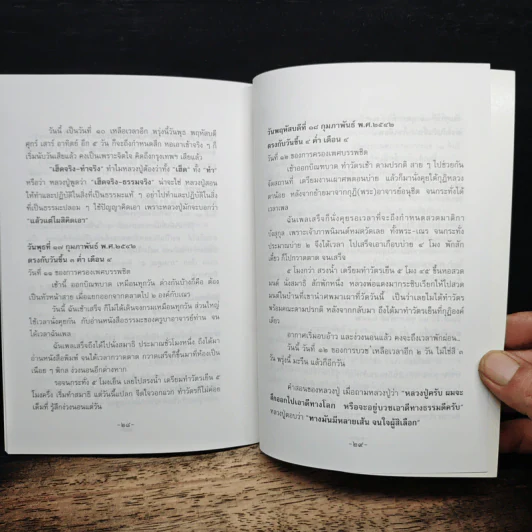 วันนี้ เป็นวันที่ ๑๐ เหลือเวลาอีก พรุ่งนี้วันพุธ พฤหัสบดี
ศุกร์ เสาร์ อาทิตย์ อีก ๕ วัน ก็จะถึงกำหนดสึก พอเอาเข้าจริง ๆ ก็
เริ่มนับวันเสียแล้ว คงเป็นเพราะจิตใจ คิดถึงกรุงเทพฯ เสียแล้ว
"เฮ็ดจริง-ทำจริง" ทำไมหลวงปู่ต้องว่าทั้ง "เฮ็ด" ทั้ง "ทำ"
หรือว่า หลวงปู่พูดว่า "เฮ็ดจริง-ธรรมจริง" น่าจะใช่ หลวงปู่สอน
ให้ทำและปฏิบัติในสิ่งที่เป็นธรรมะแท้ ๆ อย่าไปทำและปฏิบัติในสิ่ง
ที่เป็นธรรมะปลอม ๆ ใช้ปัญญาคิดเอา เพราะหลวงปู่มักจะบอกว่า
"แล้วแต่ไผสิคิดเอา"
วันพุธที่ ๑๗ กุมภาพันธ์ พ.ศ.๒๕๔๒
ตรงกับวันขึ้น ๓ ค่ำ เดือน ๔
วันที่ ๑๑ ของการครองเพศบรรพชิต
เช้านี้ ออกบิณฑบาต เหมือนทุกวัน ต่างกันบ้างก็คือ ต้อง
เป็นทั้งหน้าสาย เมื่อแยกออกจากตลาดไป ๒ องค์กับเณร
วันนี้ ฉันเช้าเสร็จ ก็ไม่ได้เดินจงกรมเหมือนทุกวัน ส่วนใหญ่
ใช้เวลานั่งคุยกัน กับอ่านหนังสือธรรมะของครูบาอาจารย์ท่าน จน
ได้เวลาฉันเพล
ฉันเพลเสร็จยังได้ไปนั่งสมาธิ ประมาณชั่วโมงหนึ่ง ยังได้มา
อ่านหนังสือพิมพ์ จนได้เวลากวาดตาด กวาดเสร็จก็ขึ้นมาที่ห้องเป็น
เนือย ๆ พิกล ง่วงนอนอีกต่างหาก
รอจนกระทั่ง ๕ โมงเย็น เลยไปสรงน้ำ เตรียมทำวัตรเย็น ๕
โมงครึ่ง เริ่มทำสมาธิ แต่วันนี้แปลก จิตใจวอกแวก ทำวัตรก็ไม่ค่อย
เต็มที่ รู้สึกง่วงนอนแต่วัน
-๒๘-
วันพฤหัสบดีที่ ๑๘ กุมภาพันธ์ พ.ศ.๒๕๔๒
ตรงกับวันขึ้น ๔ ค่ำ เดือน ๔
วันที่ ๑๒ ของการครองเพศบรรพชิต
เช้าออกบิณฑบาต ทำวัตรเช้า ตามปรกติ สาย ๆ ไปช่วยกัน
จัดสถานที่ เตรียมงานอาศพตอนบ่าย แล้วก็มานั่งคุยใต้กุฏิหลวง
อาน้อย หลังจากย้ายมาจากกุฏิ(พระ)อาจารย์อนุชิต จนกระทั่งได้
เวลาเพล
ฉันเพลเสร็จก็นั่งคุยรอเวลาที่จะถึงกำหนดสวดมาติกา
บังสุกุล เพราะเจ้าภาพนิมนต์หมดวัดเลย ทั้งพระ-เณร จนกระทั่ง
ประมาณบ่าย ๒ จึงได้เวลา ไปเสร็จเอาเกือบบ่าย ๔ โมง พักสัก
เดี๋ยว ก็ไปกวาดตาด จนเสร็จ
๕ โมงกว่า สรงน้ำ เตรียมทำวัตรเย็น ๕ โมง ๔๕ ขึ้นหอสวด
มนต์ นั่งสมาธิ สักพักหนึ่ง หลวงพ่อแดงมากระซิบเรียกให้ไปสวด
มนต์ในบ้านที่เขานำศพมาเผาที่วัดวันนี้ เป็นว่าเลยไม่ได้ทำวัตร
พร้อมคณะสามปรกติ หลังจากกลับมา ยังได้มาทำวัตรเย็นที่กุฏิองค์
เดียว
อากาศเริ่มอบอ้าว และง่วงนอนแล้ว คงจะถึงเวลาพักผ่อน..
วันนี้ วันที่ ๑๒ ของการบวช เหลือเวลาอีก ๒ วัน ไม่ใช่สิ ๓
วัน พรุ่งนี้ มะรืน แล้วก็อีกวัน
คำสอนของหลวงปู่ เมื่อถามหลวงปู่ว่า "หลวงปู่ครับ ผมจะ
สึกออกไปเอาดีทางโลก หรือจะอยู่บวชเอาดีทางธรรมดีครับ"
หลวงปู่ตอบว่า "ทางมันมีหลายเส้น จนใจผู้สิเลือก"
-๒๙-